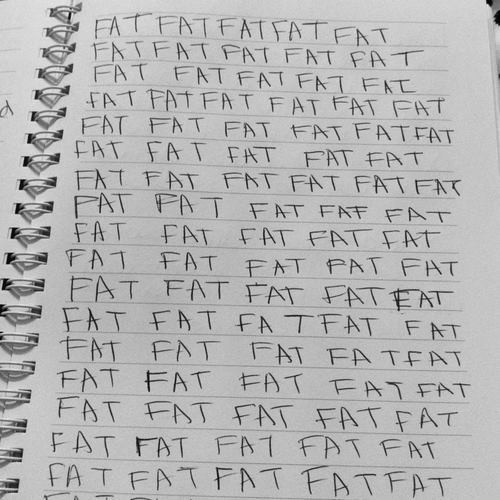 FAT FAT FAT FAT FAT
FAT FAT FAT FAT FAT
FAT FAT FAT FAT FAT
FAT FAT FAT FAT FAT FAT
FAT FAT FAT FAT FAT FAT
FAT FAT FAT FAT FAT
FAT FAT FAT FAT FAT FAT
FAT FAT FAT FAT FAT
FAT FAT FAT FAT FAT
FAT FAT FAT FAT FAT
FAT FAT FAT FAT FAT
FAT FAT FAT FAT FAT
FAT FAT FAT FAT FAT
FAT FAT FAT FAT FAT
FAT FAT FAT FAT FAT
FAT FAT FAT FAT FAT
FAT FAT FAT FAT FAT